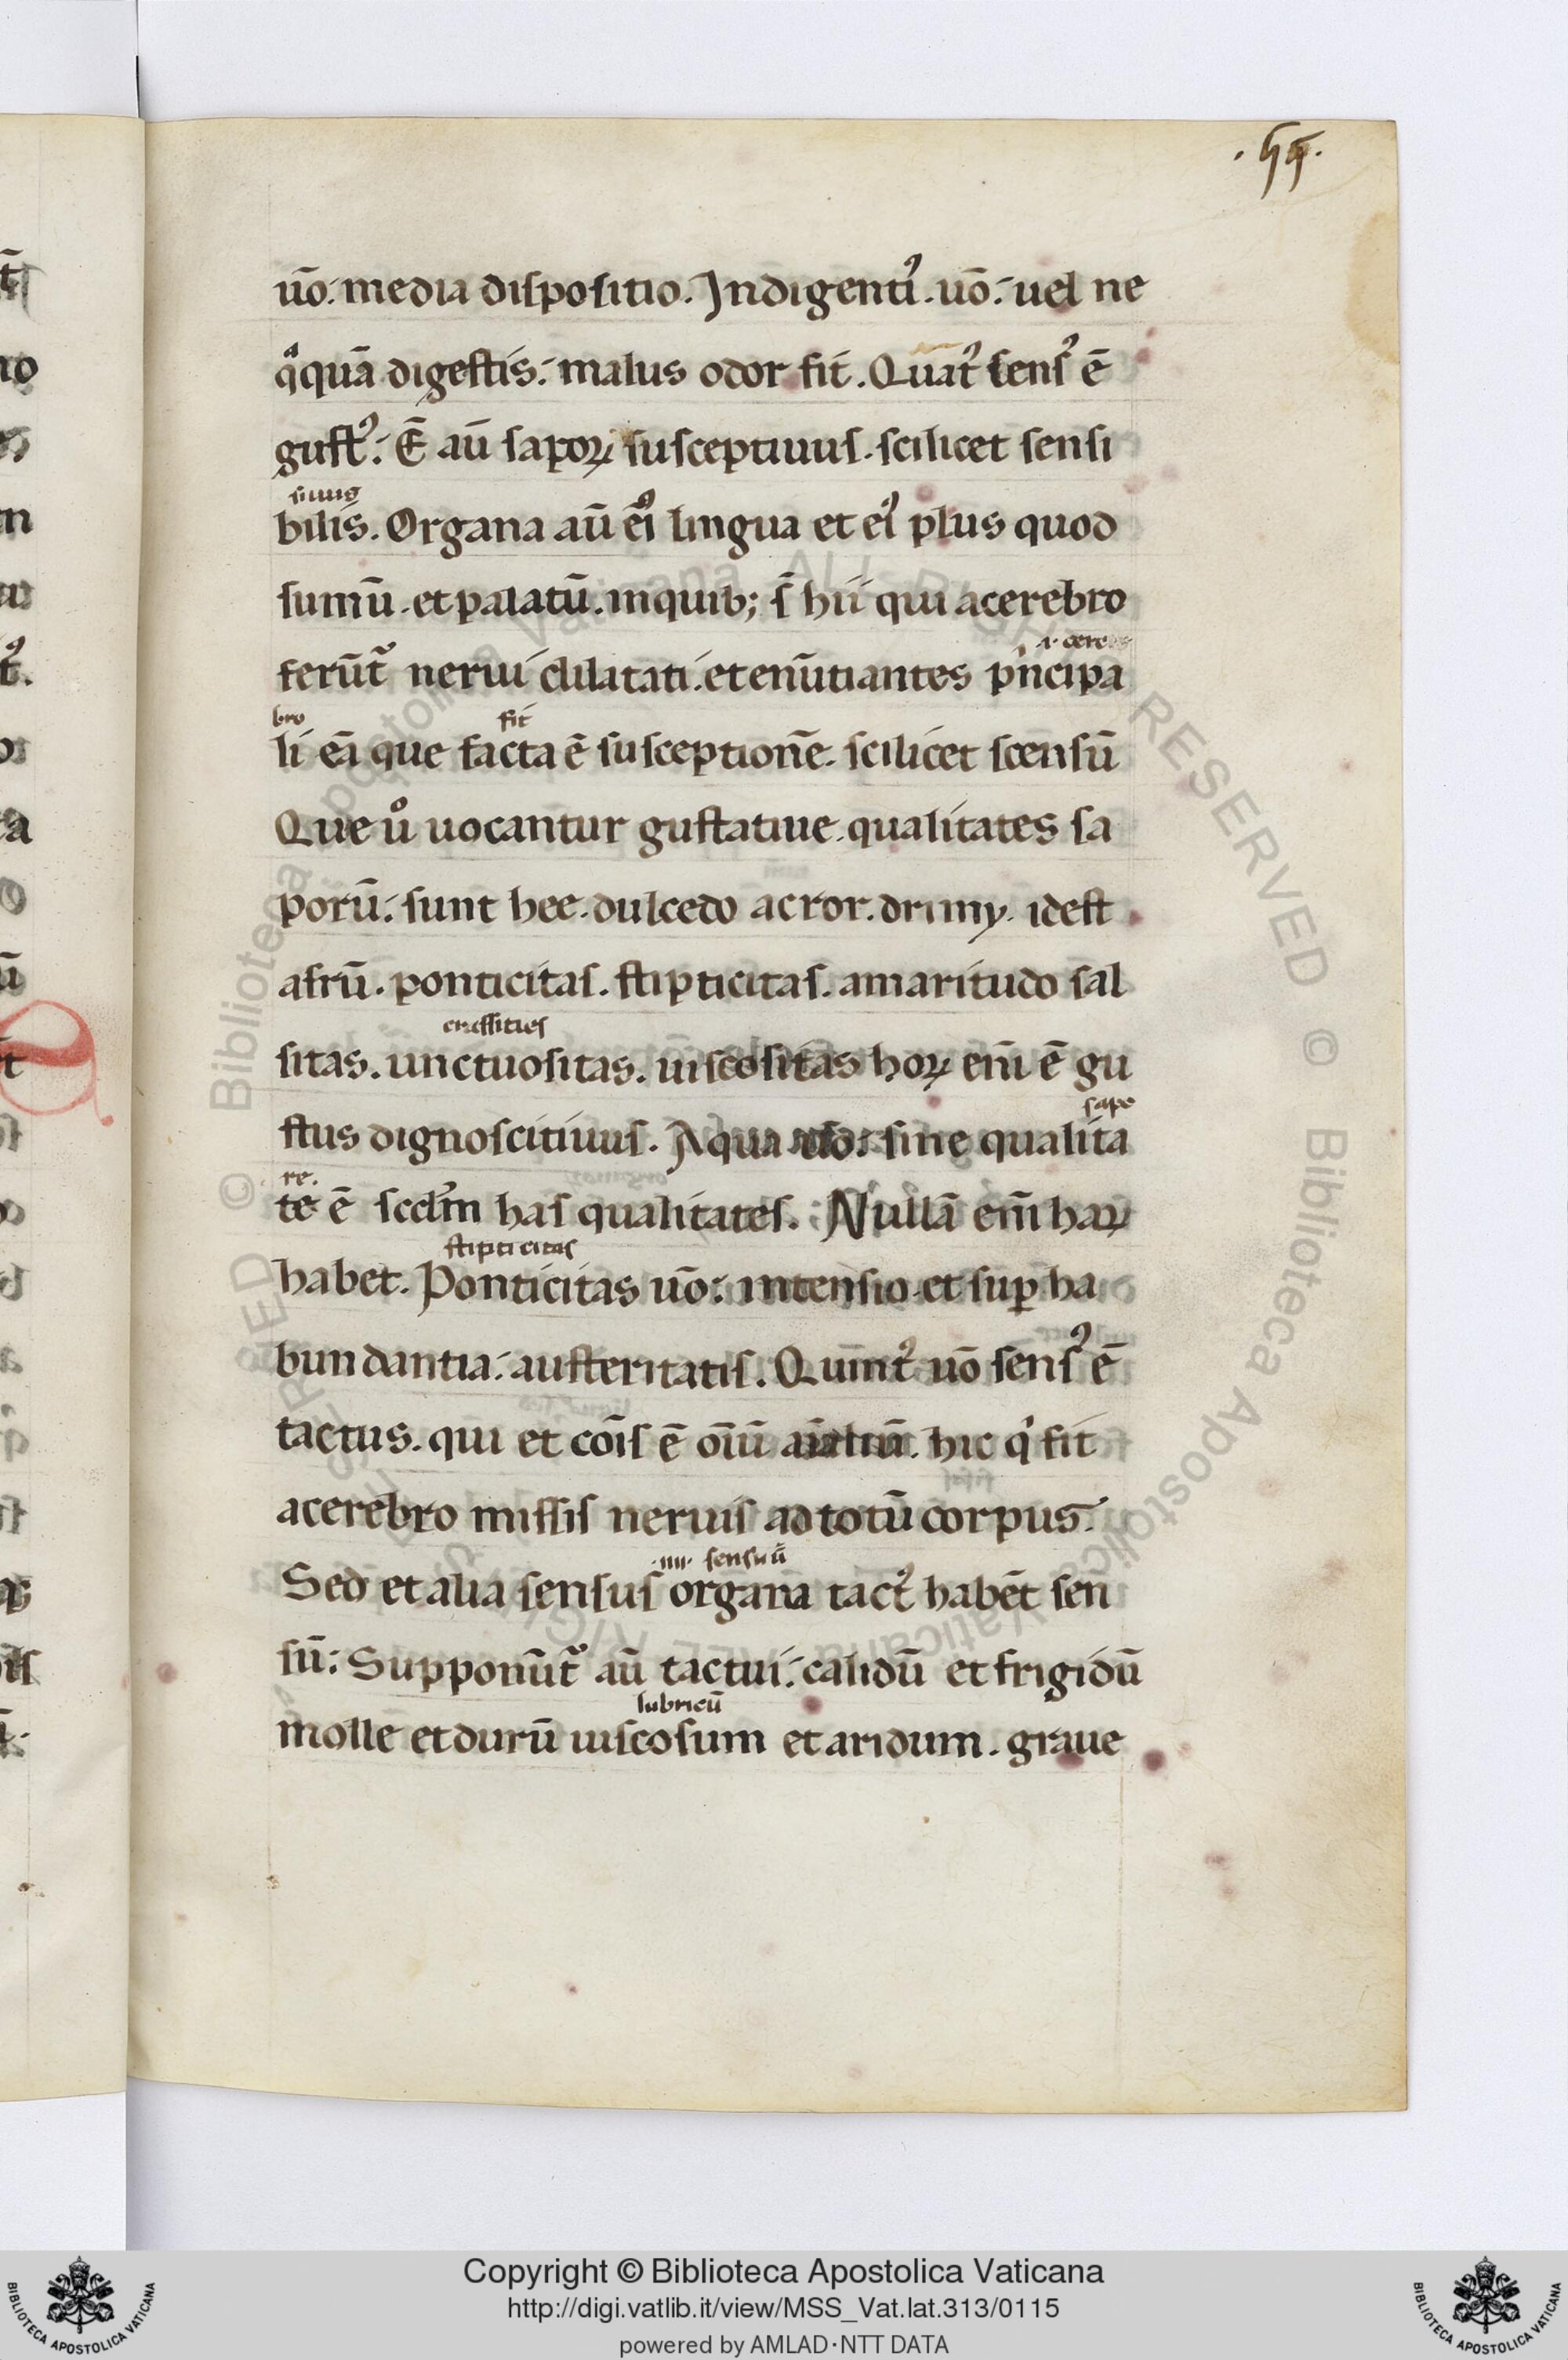 .55.
uō: media dispositio. Indigentiꝰ. uō: uel ne
qͣquā digestis: malus odor fit. Quartꝰ sensꝰ ē
gustꝰ: Ē aū sapoꝝ susceptiuus. scilicet sensi
bilis. Organa aū eiꝰ lingua et eiꝰ plus quod
sumū. et palatū. inquib; s̄ hii qui acerebro
a. cere
ferūt᷑ nerui dilatati. et enūtiantes pͥncipa
bro fit
li eā que facta ē susceptionē. scilicet scensū
Que uͦ uocantur gustatiue. qualitates sa
porū: sunt hee. dulcedo acror. drimy. idest
afrū. ponticitas. stipticitas. amaritudo sal
crassities
sitas. unctuositas. uiscositas hoꝝ eni̅ ē gu
sapo
stus dignoscitiuus. Aqua uō: sine qualita
re.
te ē scdꝰm has qualitates. Nullā eni̅ haꝝ
stipticitas
habet. Ponticitas uō: intensio et suꝑ ha
bundantia: austeritatis. Quintꝰ uō sensꝰ ē
tactus. qui et cōis ē oīū aīaliū. hic qͥ fit
acerebro missis neruis ad totū corpus.
.iiii. sensuū
Sed et alia sensus organa tactꝰ habēt sen
sū: Supponūt᷑ aū tactui: calidū et frigidū
lubricū
molle et durū uiscosum et aridum. graue
Copyright © Biblioteca Apostolica Vaticana
http://digi.vatlib.it/view/MSS_Vat.lat.313/0115
powered by AMLAD·NTT DATA
BIBLIOTECA APOSTOLICA VATICANA
BIBLIOTECA APOSTOLICA VATICANA